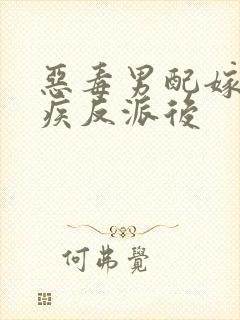 惡毒男配嫁
疾反派後
何弗覺